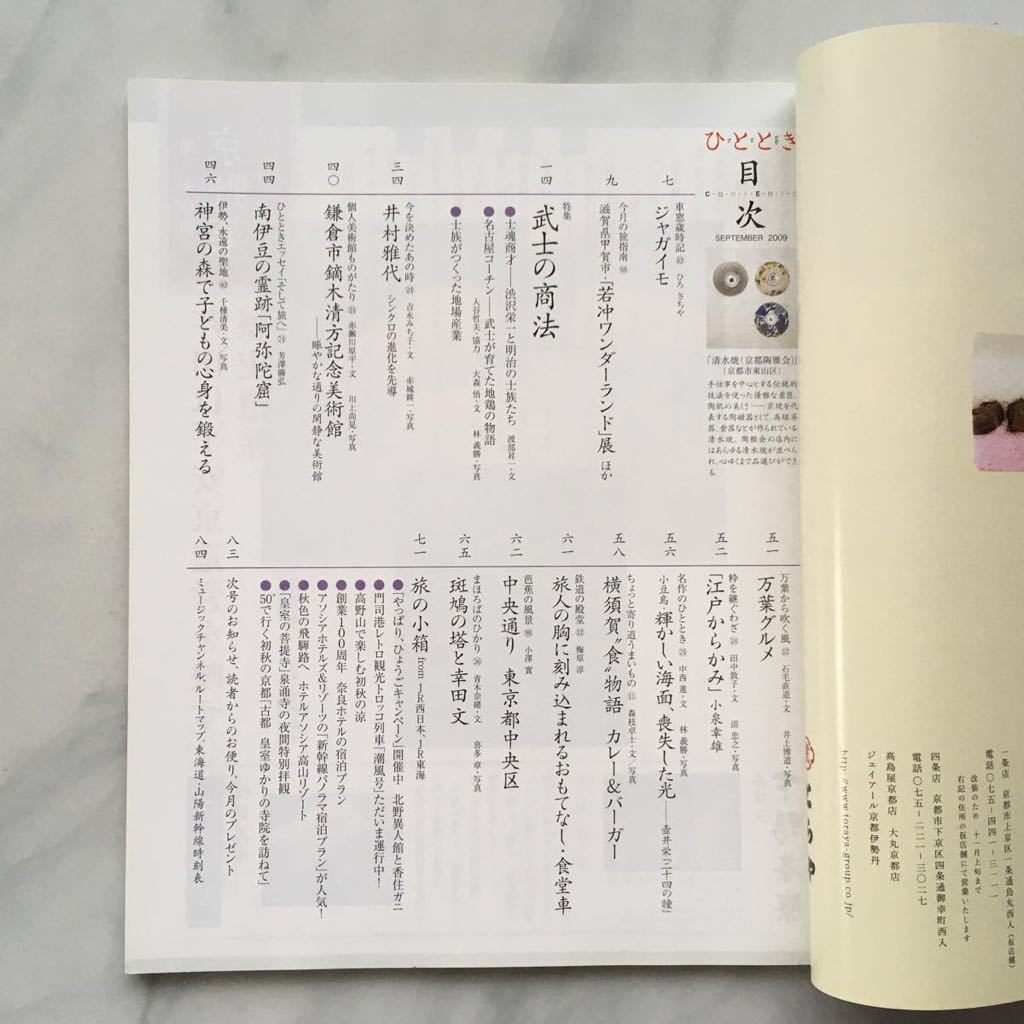 ひととき
目次
CONTENTS
SEPTEMBER 2009
「清水焼(京都陶雅会)」
(京都市東山区)
手仕事を中心とする伝統的
技法を使った優雅な意匠、
陶肌の美しさ――京焼を代
表する陶磁器として、高級茶
器、食器などが作られている
清水焼。陶雅会の店内に
はあらゆる清水焼が並べら
れ、心ゆくまで品選びができ
る。
七
車窓歳時記 62 ひろ さちや
ジャガイモ
九
今月の旅指南 98
滋賀県甲賀市・「若冲ワンダーランド」展 ほか
一四
特集
武士の商法
●士魂商才――渋沢栄一と明治の士族たち 渡部昇一・文
●名古屋コーチン――武士が育てた地鶏の物語
入谷哲夫・協力 大森 悟・文 林 義勝・写真
●士族がつくった地場産業
三四
今を決めたあの時 24 吉永みち子・文 赤城耕一・写真
井村雅代 シンクロの進化を先導
四〇
個人美術館ものがたり 赤瀬川原平・文 川上尚見・写真
鎌倉市鏑木清方記念美術館
――賑やかな通りの閑静な美術館
四四
ひとときエッセイ「そして旅へ」 芳澤勝弘
南伊豆の霊跡「阿弥陀窟」
四六
伊勢、永遠の聖地 千種清美・文/写真
神宮の森で子どもの心身を鍛える
五一
万葉から吹く風 12 石毛直道・文 井上博道・写真
万葉グルメ
五二
粋を継ぐわざ 田中敦子・文 渞 忠之・写真
「江戸からかみ」 小泉幸雄
五六
名作のひととき 中西 進・文 林 義勝・写真
小豆島・輝かしい海面、喪失した光――壷井栄『二十四の瞳』
五八
ちょっと寄り道うまいもの 11 森枝卓士・文/写真
横須賀“食”物語 カレー&バーガー
六一
鉄道の殿堂 12 梅原 淳
旅人の胸に刻み込まれるおもてなし・食堂車
六二
芭蕉の風景 98 小澤 實
中央通り 東京都中央区
六五
まほろばのひかり 青木奈緒・文 喜多 章・写真
斑鳩の塔と幸田文
七一
旅の小箱 from JR西日本、JR東海
●「やっぱり、ひょうごキャンペーン」開催中 北野異人館と香住ガニ
●門司港レトロ観光トロッコ列車「潮風号」ただいま運行中!
●高野山で楽しむ初秋の涼
●創業100周年 奈良ホテルの宿泊プラン
●アソシアホテルズ&リゾーツの「新幹線パノラマ宿泊プラン」が人気!
●秋色の飛騨路へ ホテルアソシア高山リゾート
●「皇室の菩提寺」泉涌寺の夜間特別拝観
●50+で行く初秋の京都「古都 皇室ゆかりの寺院を訪ねて」
八三
次号のお知らせ、読者からのお便り、今月のプレゼント
八四
ミュージックチャンネル、ルートマップ、東海道・山陽新幹線時刻表
一条店 京都市上京区一条通烏丸西入(仮店舗)
電話〇七五-四四一-三一一一
改装のため 十一月上旬まで
右記の住所の仮店舗にて営業いたします
四条店 京都市下京区四条通御幸町西入
電話〇七五-二二一-三〇二七
髙島屋京都店 大丸京都店
ジェイアール京都伊勢丹
http://www.toraya-group.co.jp/